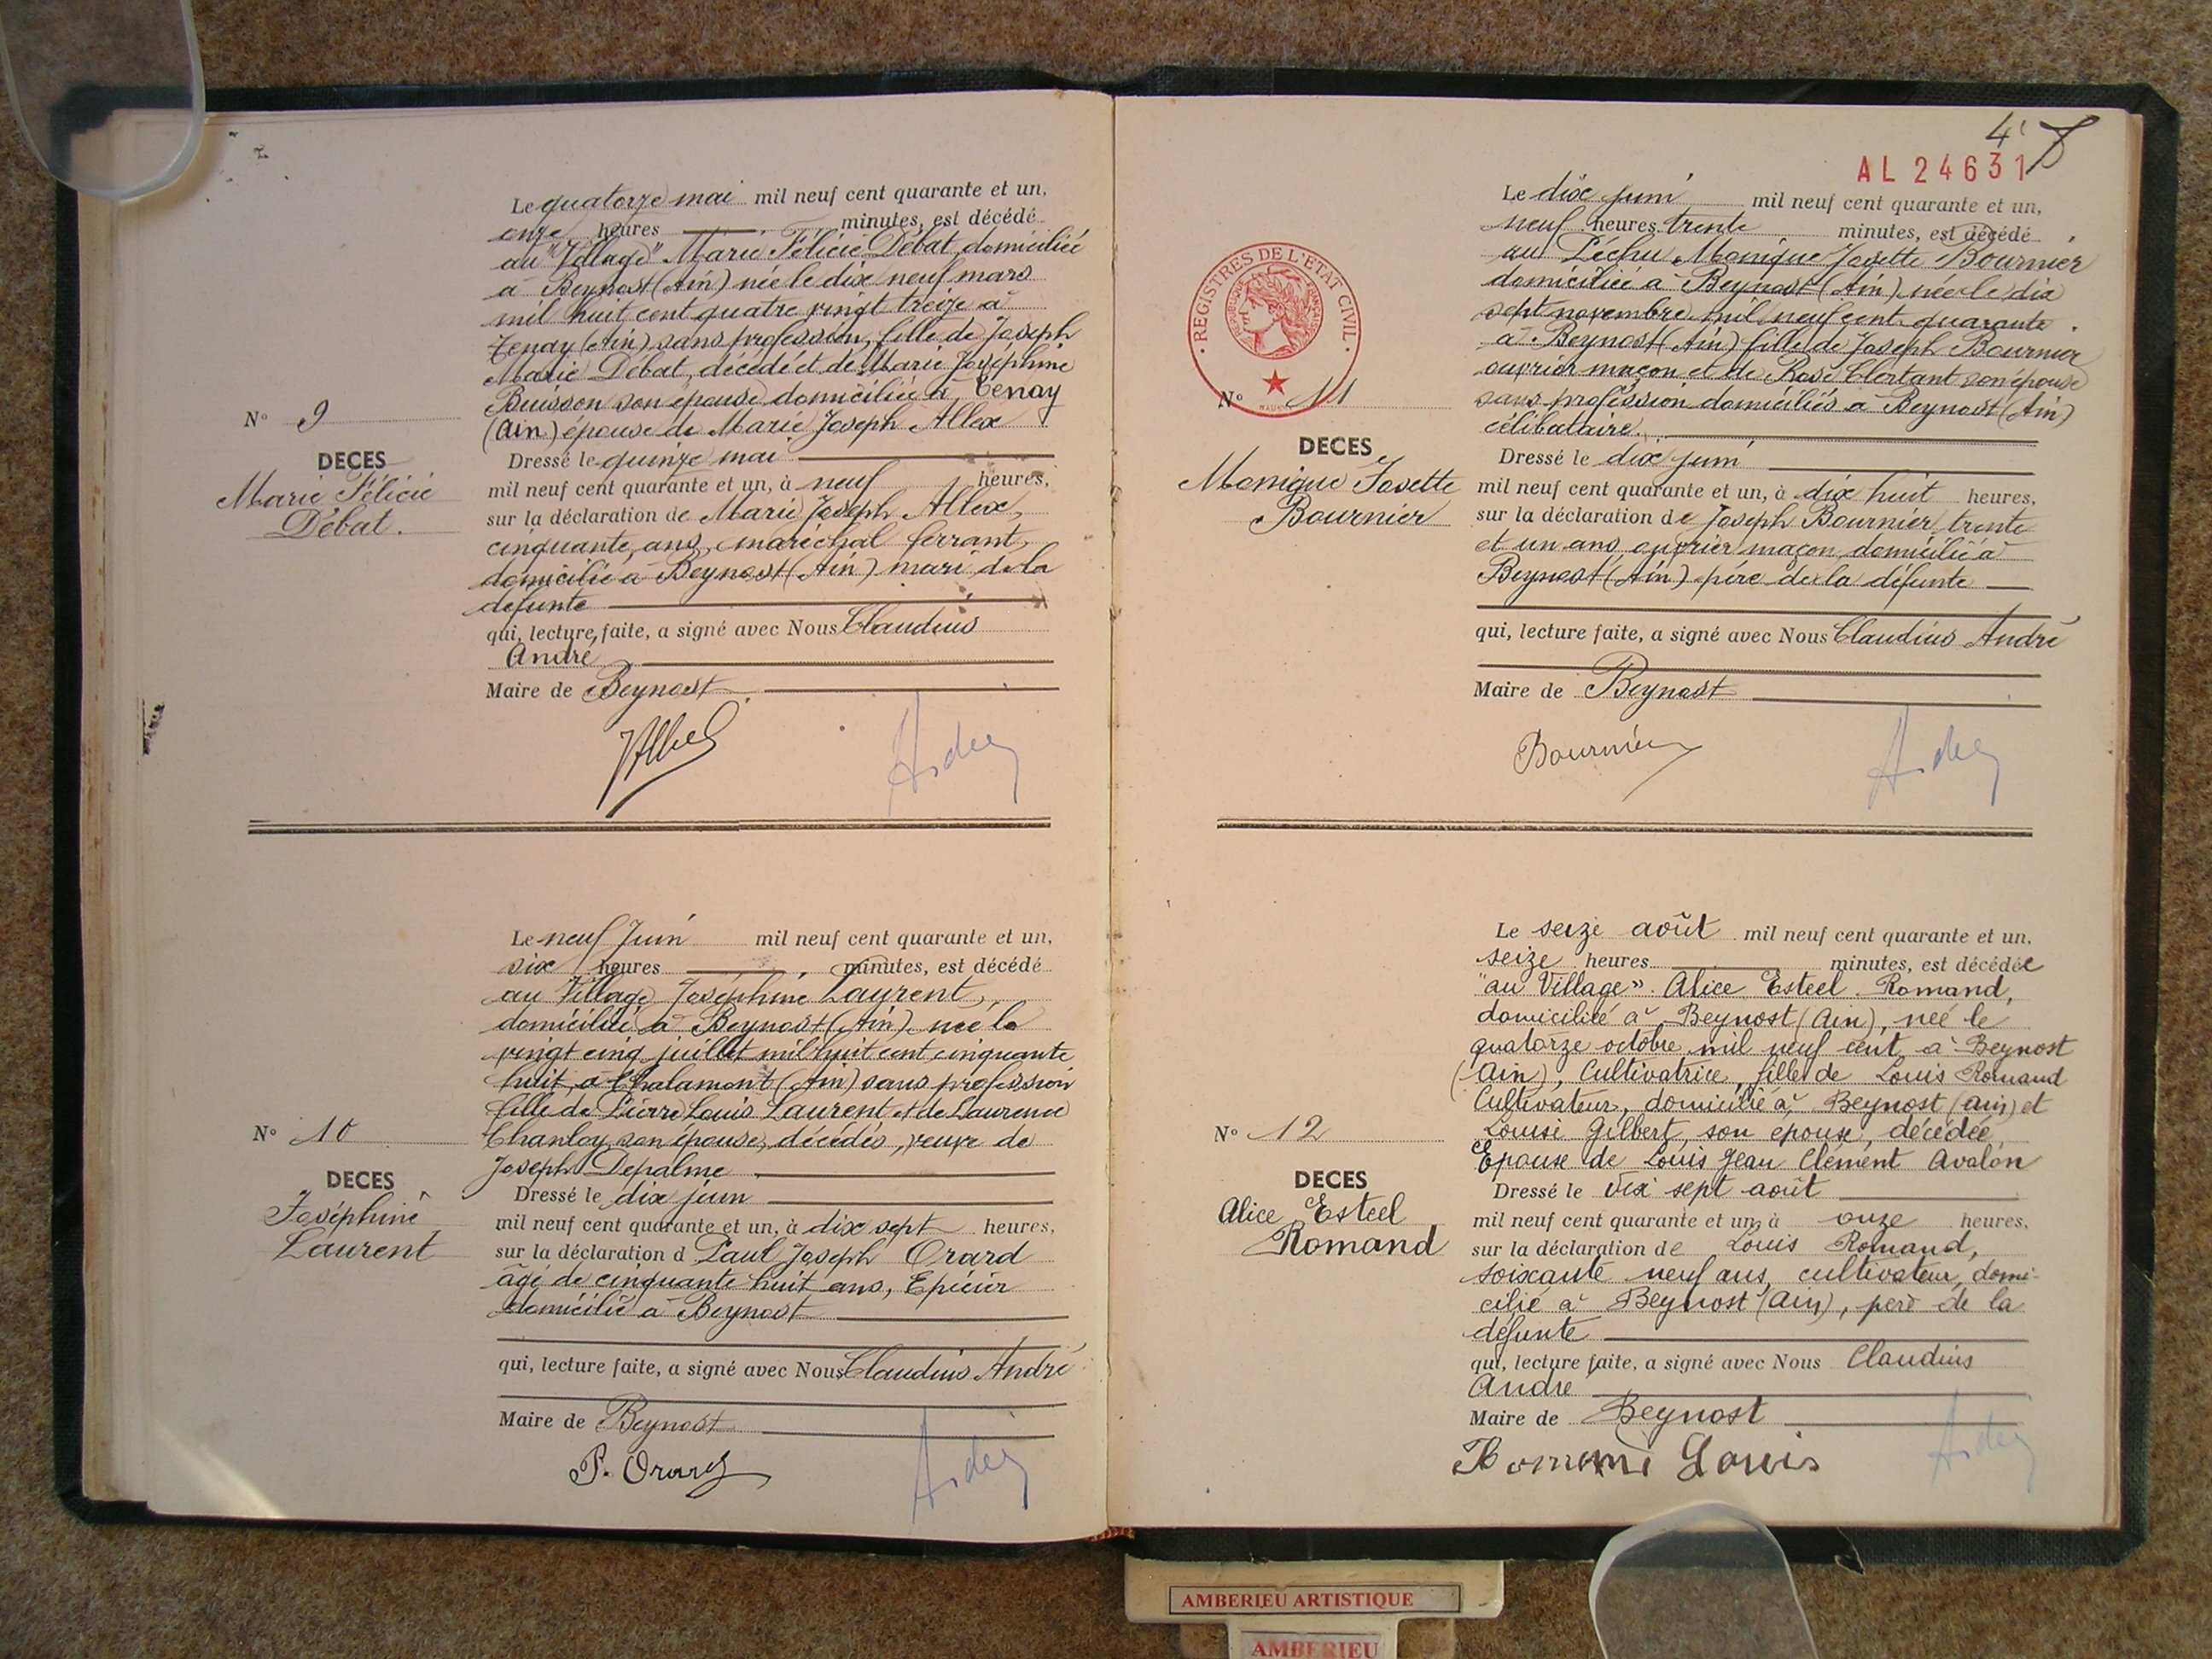 Le quatorze mai mil neuf cent quarante et un,
onze heures minutes, est décédé
au "Village" Marie Félicie Débat, domiciliée
à Beynost (Ain) née le dix neuf mars
mil huit cent quatre vingt treize à
Tenay (Ain) sans profession, fille de Joseph
Marie Débat, décédé et de Marie Joséphine
Buisson son épouse domiciliée à Tenay
(Ain) épouse de Marie Joseph Allex
N° 9
DECES
Marie Félicie
Débat.
Dressé le quinze mai
mil neuf cent quarante et un, à neuf heures,
sur la déclaration de Marie Joseph Allex,
cinquante ans, maréchal ferrant,
domicilié à Beynost (Ain) mari de la
défunte
qui, lecture faite, a signé avec Nous Claudius
André
Maire de Beynost
Le neuf Juin mil neuf cent quarante et un,
six heures minutes, est décédé
au Village Joséphine Laurent,
domiciliée à Beynost (Ain) née le
vingt cinq juillet mil huit cent cinquante
huit, à Chalamont (Ain) sans profession
fille de Pierre Louis Laurent et de Laurence
Chanloy son épouse, décédés, veuve de
Joseph Depalme
N° 10
DECES
Joséphine
Laurent
Dressé le dix juin
mil neuf cent quarante et un, à dix sept heures,
sur la déclaration d Paul Joseph Orard
âgé de cinquante huit ans, Epicier
domicilié à Beynost
qui, lecture faite, a signé avec Nous Claudius André
Maire de Beynost
P. Orard
4
AL 24631
REGISTRES DE L'ETAT CIVIL
Le dix juin mil neuf cent quarante et un,
neuf heures trente minutes, est décédé
au Péchu Monique Josette Bournier
domiciliée à Beynost (Ain) née le dix
sept novembre mil neuf cent quarante
à Beynost (Ain) fille de Joseph Bournier
ouvrier maçon et de Rose Clertant son épouse
sans profession domiciliés à Beynost (Ain)
célibataire.
N° 11
DECES
Monique Josette
Bournier
Dressé le dix juin
mil neuf cent quarante et un, à dix huit heures,
sur la déclaration de Joseph Bournier trente
et un ans, ouvrier maçon domicilié à
Beynost (Ain) père de la défunte
qui, lecture faite, a signé avec Nous Claudius André
Maire de Beynost
Bournier
Le seize août mil neuf cent quarante et un,
seize heures minutes, est décédée
"au Village". Alice Esteel Romand,
domicilié à Beynost (Ain), neé le
quatorze octobre mil neuf cent à Beynost
(Ain), Cultivatrice, fille de Louis Romand
Cultivateur, domicilié à Beynost (Ain) et
Louise Gilbert, son epouse, décédée,
Epouse de Louis Jean Clément Avalon
N° 12
DECES
Alice Esteel
Romand
Dressé le dix sept août
mil neuf cent quarante et un, à onze heures,
sur la déclaration de Louis Romand,
soixante neuf ans, cultivateur, domi-
cilié à Beynost (Ain), père de la
defunte
qui, lecture faite, a signé avec Nous Claudius
André
Maire de Beynost
Romand Louis
AMBERIEU ARTISTIQUE
AMBERIEU